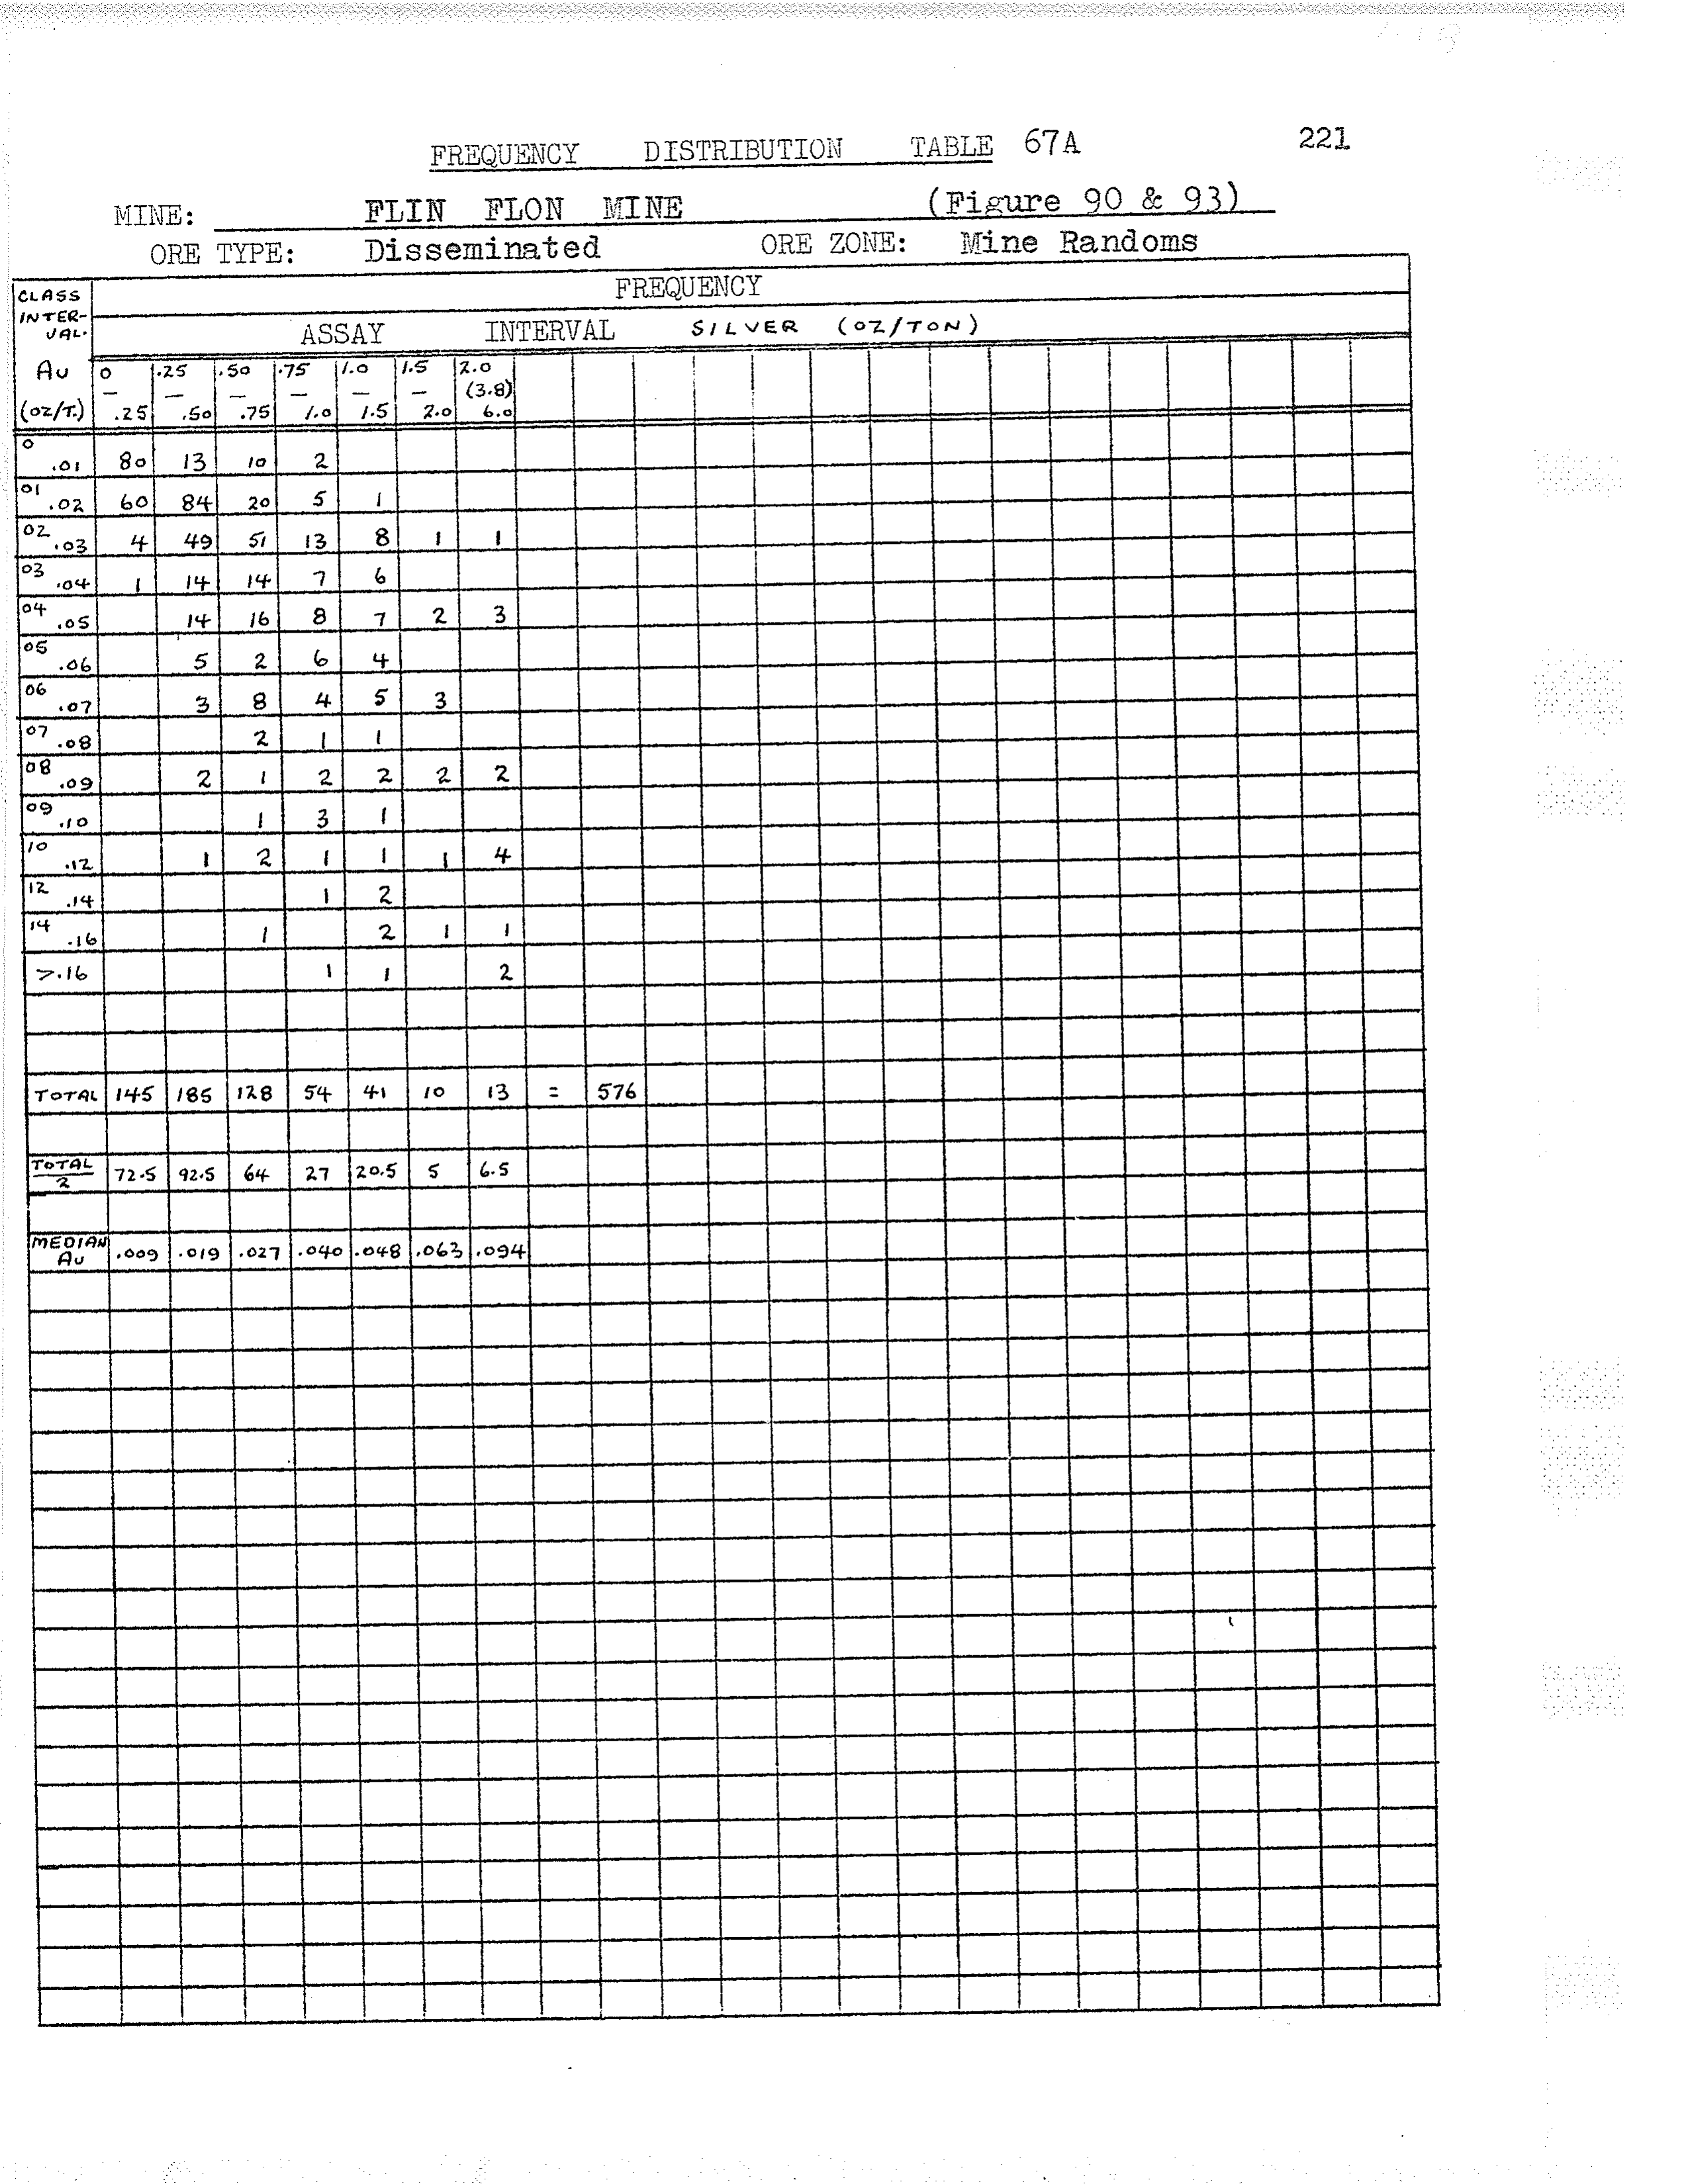 FREQUENCY DISTRIBUTION TABLE 67A 221
MINE: FLIN FLON MINE (Figure 90 & 93)
ORE TYPE: Disseminated ORE ZONE: Mine Randoms
CLASS INTER-VAL. FREQUENCY
ASSAY INTERVAL SILVER (OZ/TON)
Au 0 .25 .50 .75 1.0 1.5 2.0
— — — — — — (3.8)
(OZ/T.) .25 .50 .75 1.0 1.5 2.0 6.0
0 .01 80 13 10 2
01 .02 60 84 20 5 1
02 .03 4 49 51 13 8 1 1
03 .04 1 14 14 7 6
04 .05 14 16 8 7 2 3
05 .06 5 2 6 4
06 .07 3 8 4 5 3
07 .08 2 1 1
08 .09 2 1 2 2 2 2
09 .10 1 3 1
10 .12 1 2 1 1 1 4
12 .14 1 2
14 .16 1 2 1 1
>.16 1 1 2
TOTAL 145 185 128 54 41 10 13 = 576
TOTAL/2 72.5 92.5 64 27 20.5 5 6.5
MEDIAN Au .009 .019 .027 .040 .048 .063 .094